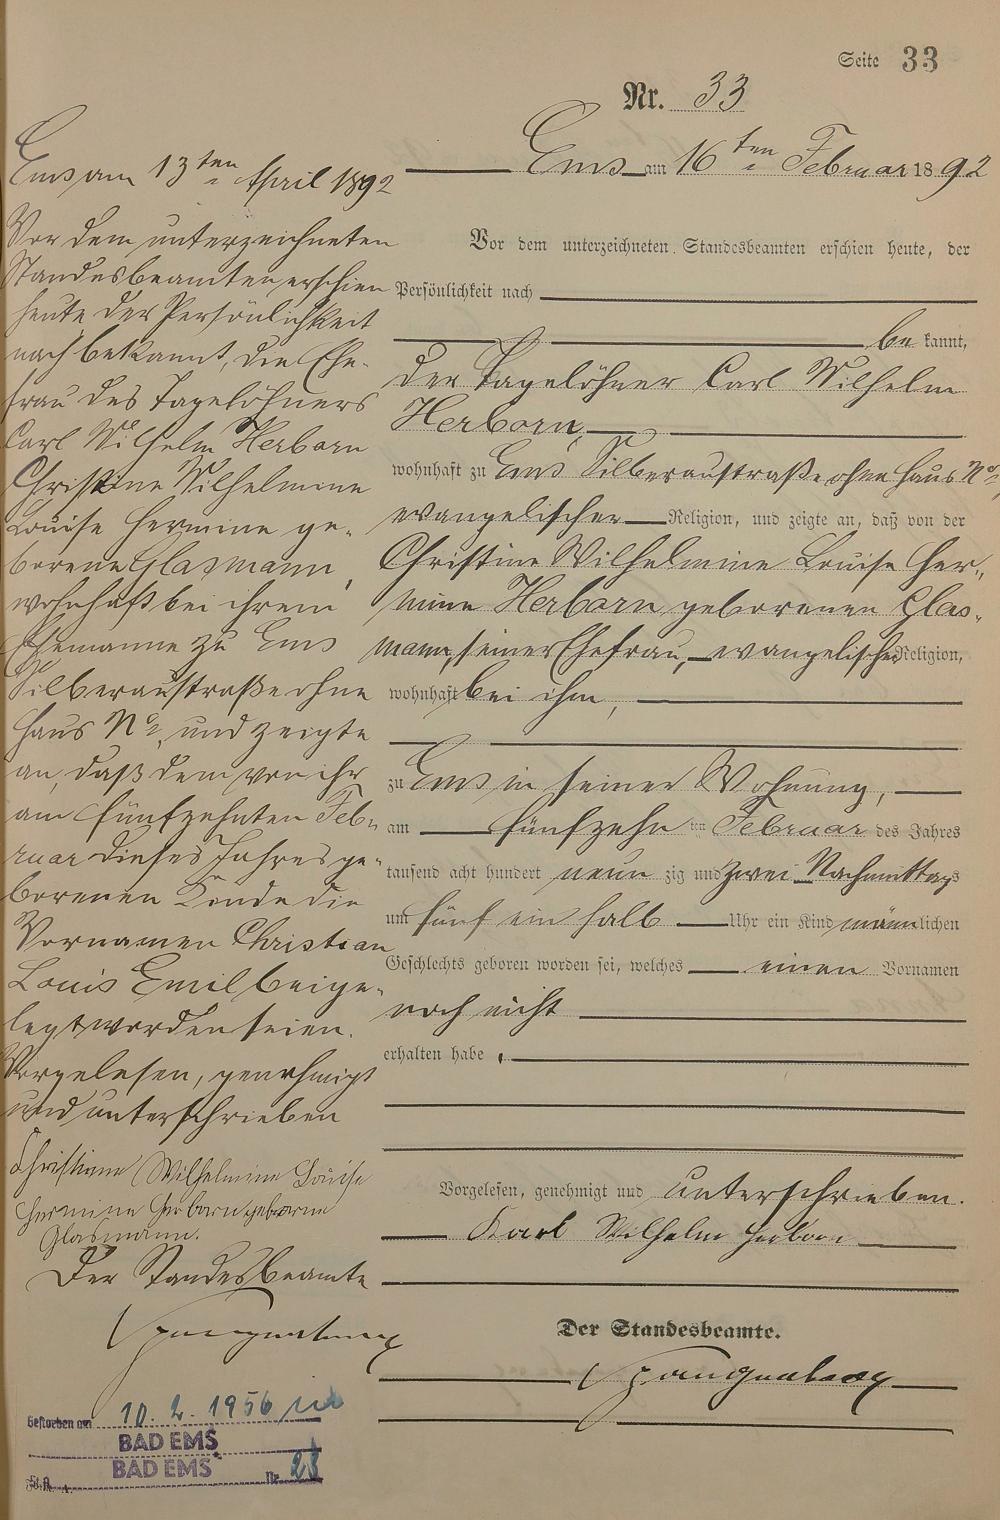 Seite 33
Nr. 33
Ems am 16ten Februar 1892
Vor dem unterzeichneten Standesbeamten erschien heute, der
Persönlichkeit nach
be kannt,
der Tagelöhner Carl Wilhelm
Herborn,
wohnhaft zu Ems Silberaustraße ohne Haus No.,
evangelischer Religion, und zeigte an, daß von der
Christine Wilhelmine Louise Her-
mine Herborn geborenen Glas-
mann, seiner Ehefrau, evangelischer Religion,
wohnhaft bei ihm,
zu Ems in seiner Wohnung,
am fünfzehn ten Februar des Jahres
tausend acht hundert neun zig und zwei Nachmittags
um fünf ein halb Uhr ein Kind männlichen
Geschlechts geboren worden sei, welches einen Vornamen
noch nicht
erhalten habe.
Vorgelesen, genehmigt und unterschrieben.
Karl Wilhelm Herborn
Der Standesbeamte.
Ems am 13ten April 1892
Vor dem unterzeichneten
Standesbeamten erschien
heute der Persönlichkeit
nach bekannt, die Ehe-
frau des Tagelöhners
Carl Wilhelm Herborn
Christine Wilhelmine
Louise Hermine ge-
borene Glasmann,
wohnhaft bei ihrem
Ehemanne zu Ems
Silberaustraße ohne
Haus No., und zeigte
an, daß dem von ihr
am fünfzehnten Feb-
ruar dieses Jahres ge-
borenen Kinde die
Vornamen Christian
Louis Emil beige-
legt worden seien.
Vorgelesen, genehmigt
und unterschrieben
Christiane Wilhelmine Louise
Hermine Herborn geborne
Glasmann.
Der Standesbeamte
Gestorben am 10. 2. 1956
BAD EMS
BAD EMS
St. A. Nr. 28